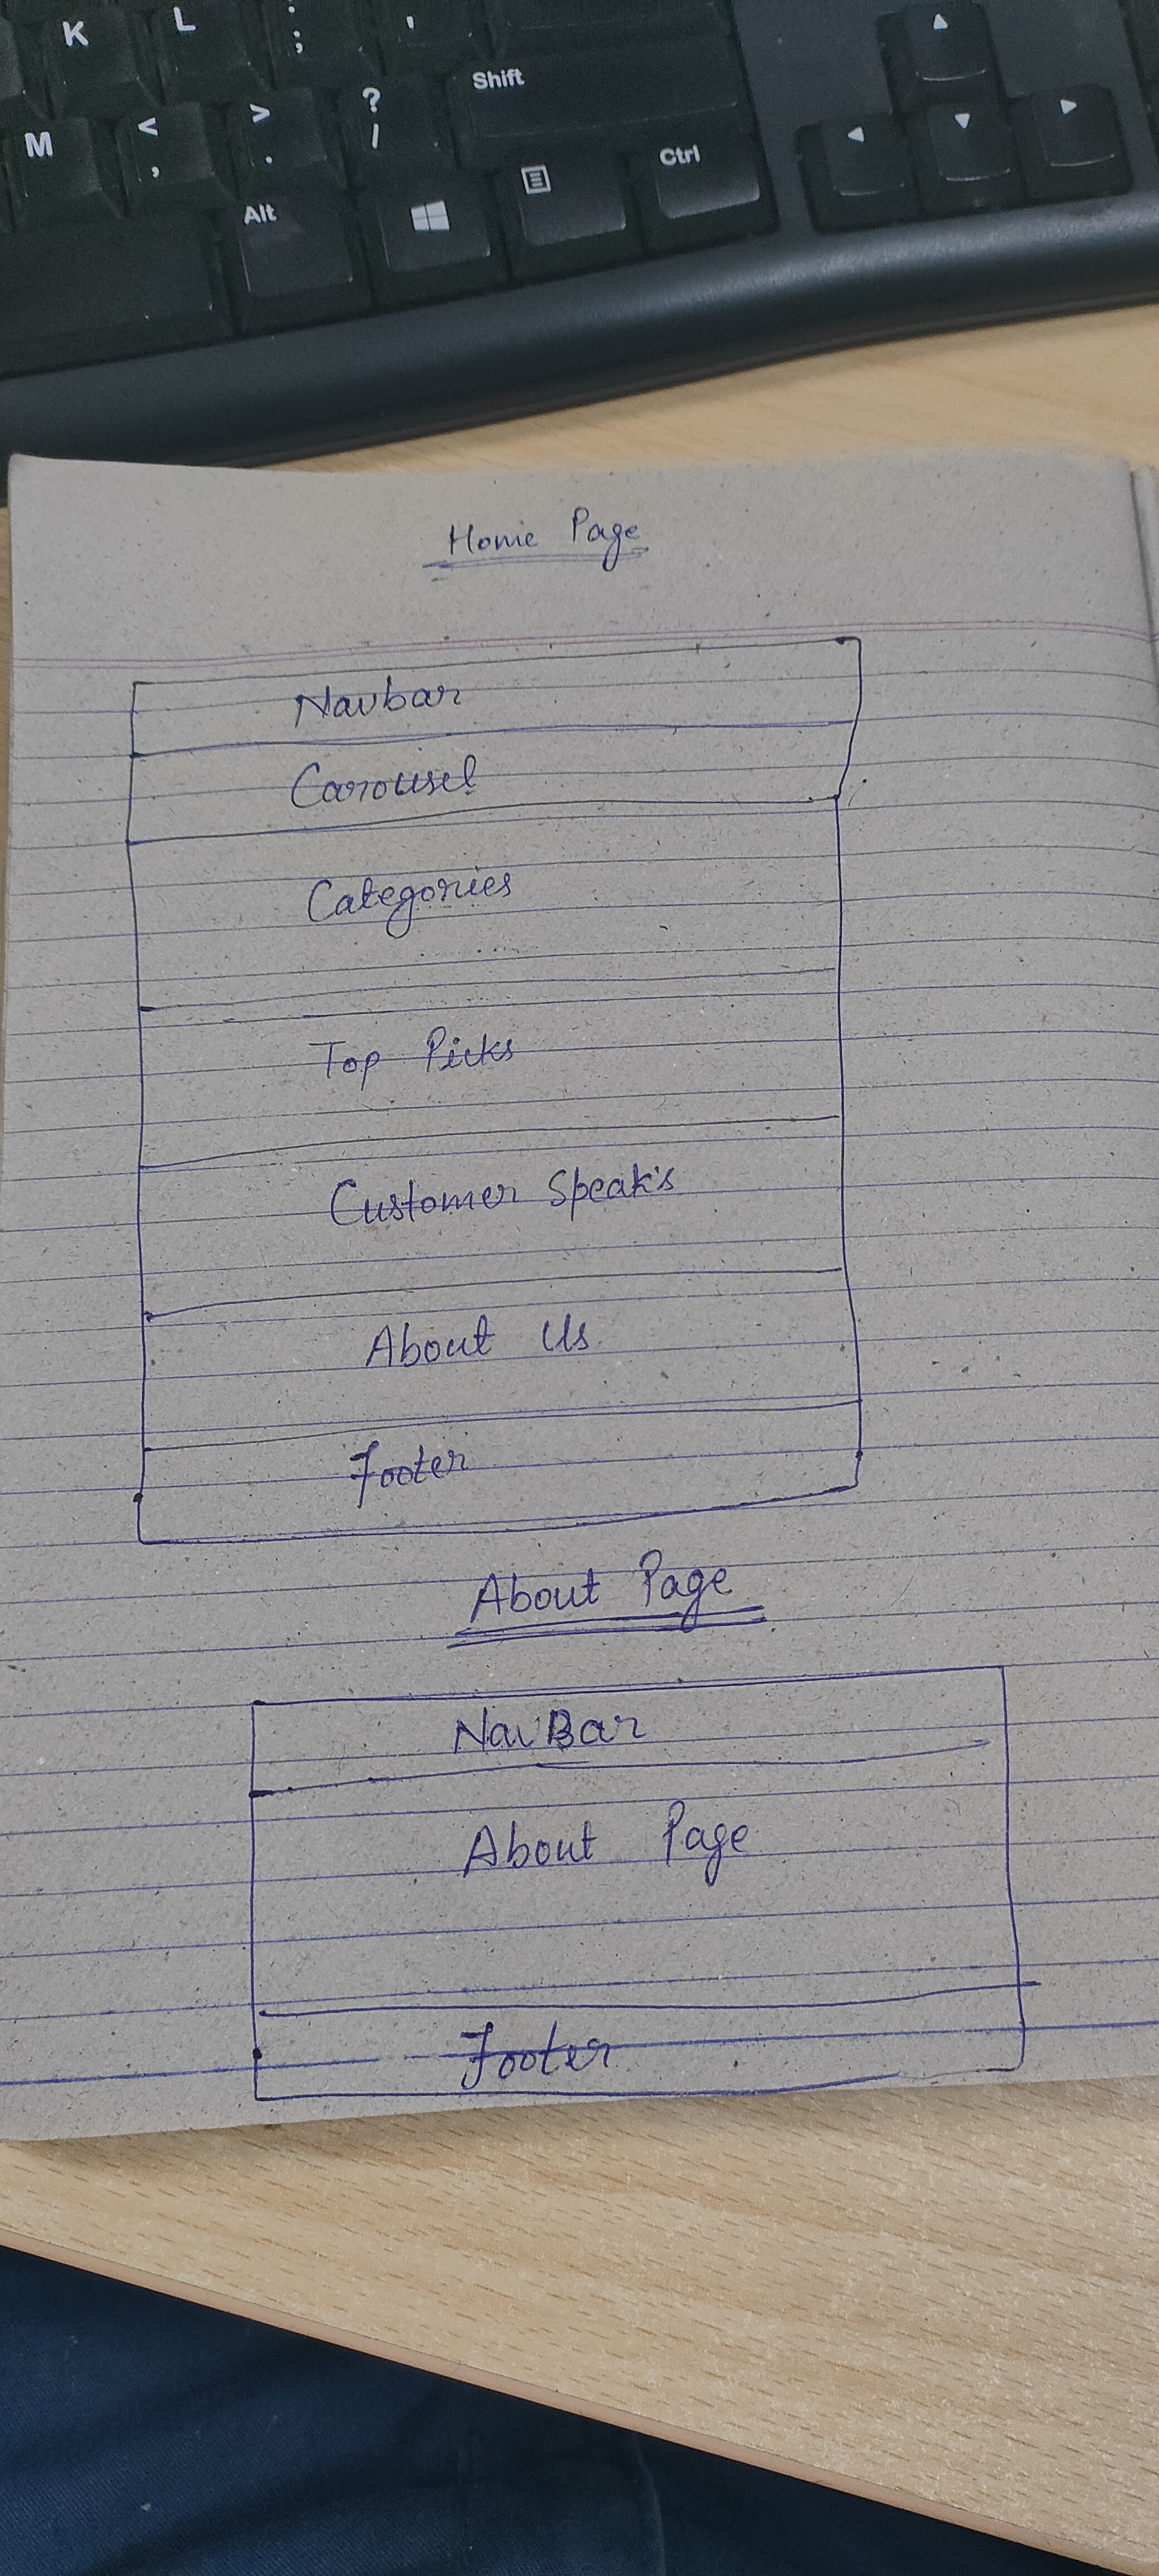 K L : ; '
M < , > . ? / Shift
Alt Ctrl
Home Page
Navbar
Carousel
Categories
Top Picks
Customer Speak's
About Us
Footer
About Page
NavBar
About Page
Footer